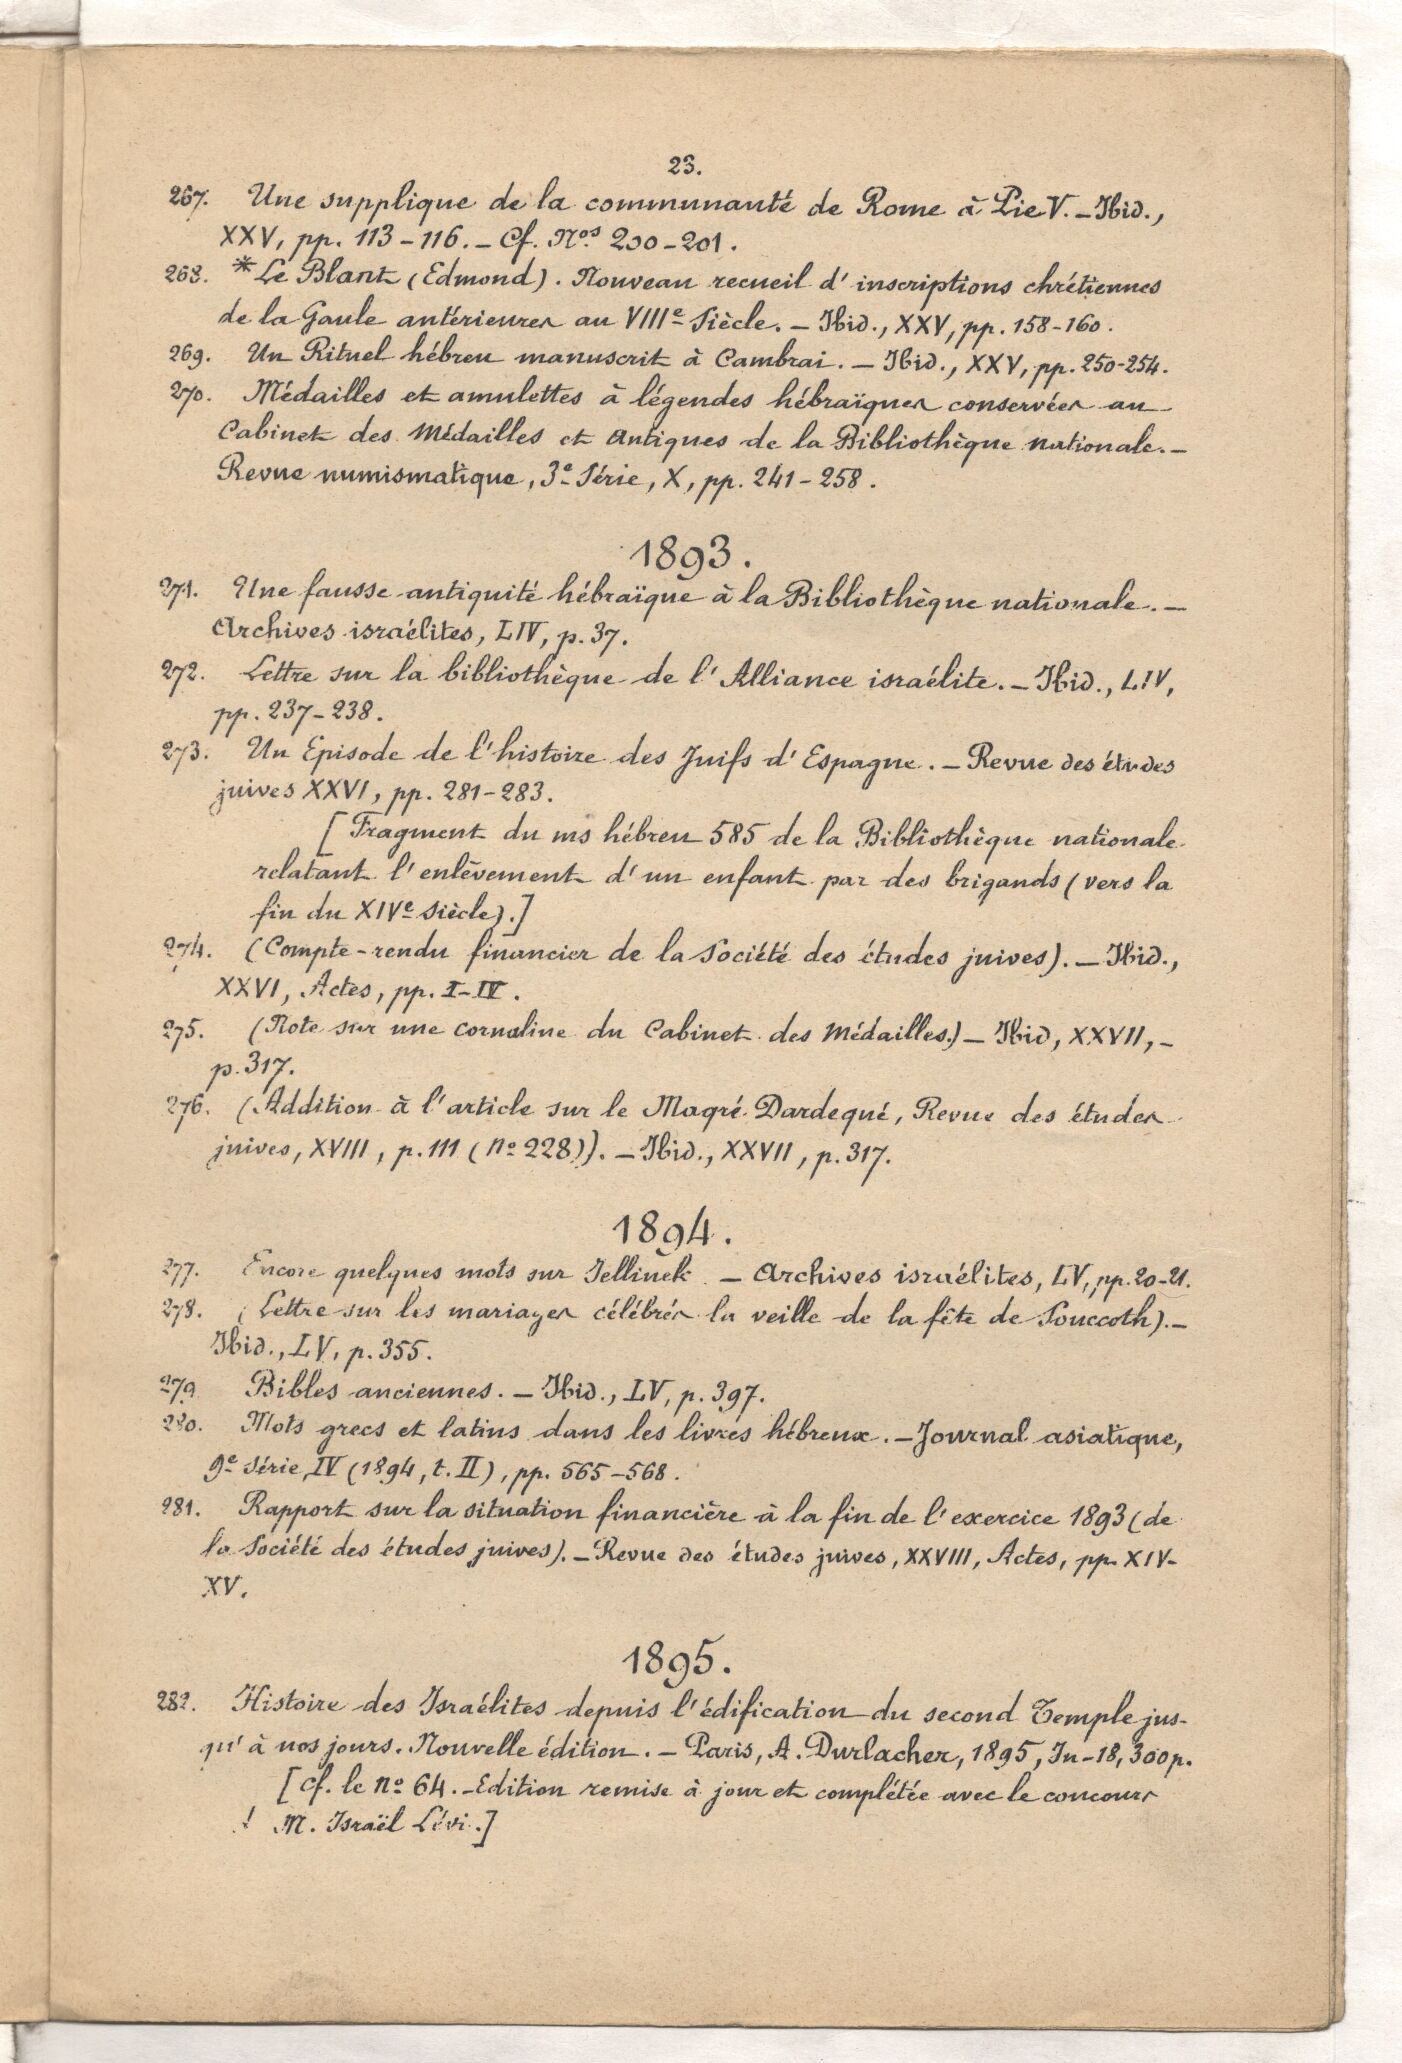 23.
267. Une supplique de la communauté de Rome à Pie V. – Ibid.,
XXV, pp. 113-116. – Cf. Nos 200-201.
268. * Le Blant (Edmond). Nouveau recueil d'inscriptions chrétiennes
de la Gaule antérieures au VIIIe Siècle. – Ibid., XXV, pp. 158-160.
269. Un Rituel hébreu manuscrit à Cambrai. – Ibid., XXV, pp. 250-254.
270. Médailles et amulettes à légendes hébraïques conservées au
Cabinet des Médailles et Antiques de la Bibliothèque nationale. –
Revue numismatique, 3e Série, X, pp. 241-258.
1893.
271. Une fausse antiquité hébraïque à la Bibliothèque nationale. –
Archives israélites, LIV, p. 37.
272. Lettre sur la bibliothèque de l'Alliance israélite. – Ibid., LIV,
pp. 237-238.
273. Un Episode de l'histoire des Juifs d'Espagne. – Revue des études
juives XXVI, pp. 281-283.
[Fragment du ms hébreu 585 de la Bibliothèque nationale
relatant l'enlèvement d'un enfant par des brigands (vers la
fin du XIVe siècle).]
274. (Compte-rendu financier de la Société des études juives). – Ibid.,
XXVI, Actes, pp. I-IV.
275. (Note sur une cornaline du Cabinet des Médailles.) – Ibid, XXVII, –
p. 317.
276. (Addition à l'article sur le Maqré Dardeqé, Revue des études
juives, XVIII, p. 111 (no 228)). – Ibid., XXVII, p. 317.
1894.
277. Encore quelques mots sur Jellinek – Archives israélites, LV, pp. 20-21.
278. (Lettre sur les mariages célébrés la veille de la fête de Souccoth). –
Ibid., LV, p. 355.
279 Bibles anciennes. – Ibid., LV, p. 397.
280. Mots grecs et latins dans les livres hébreux. – Journal asiatique,
9e Série, IV (1894, t. II), pp. 565-568.
281. Rapport sur la situation financière à la fin de l'exercice 1893 (de
la Société des études juives). – Revue des études juives, XXVIII, Actes, pp. XIV-
XV.
1895.
282. Histoire des Israélites depuis l'édification du second Temple jus-
qu'à nos jours. Nouvelle édition. – Paris, A. Durlacher, 1895, In-18, 300 p.
[Cf. le no 64. – Edition remise à jour et complétée avec le concours
M. Israël Lévi.]